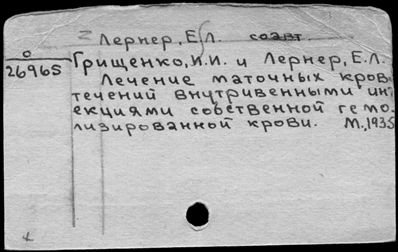 Лернер, Е.Л. соавт.
О
26965
Грищенко, И.И. и Лернер, Е.Л.
Лечение маточных кров
течений внутривенными ин
екциями собственной гемо
лизированной крови. М., 1935